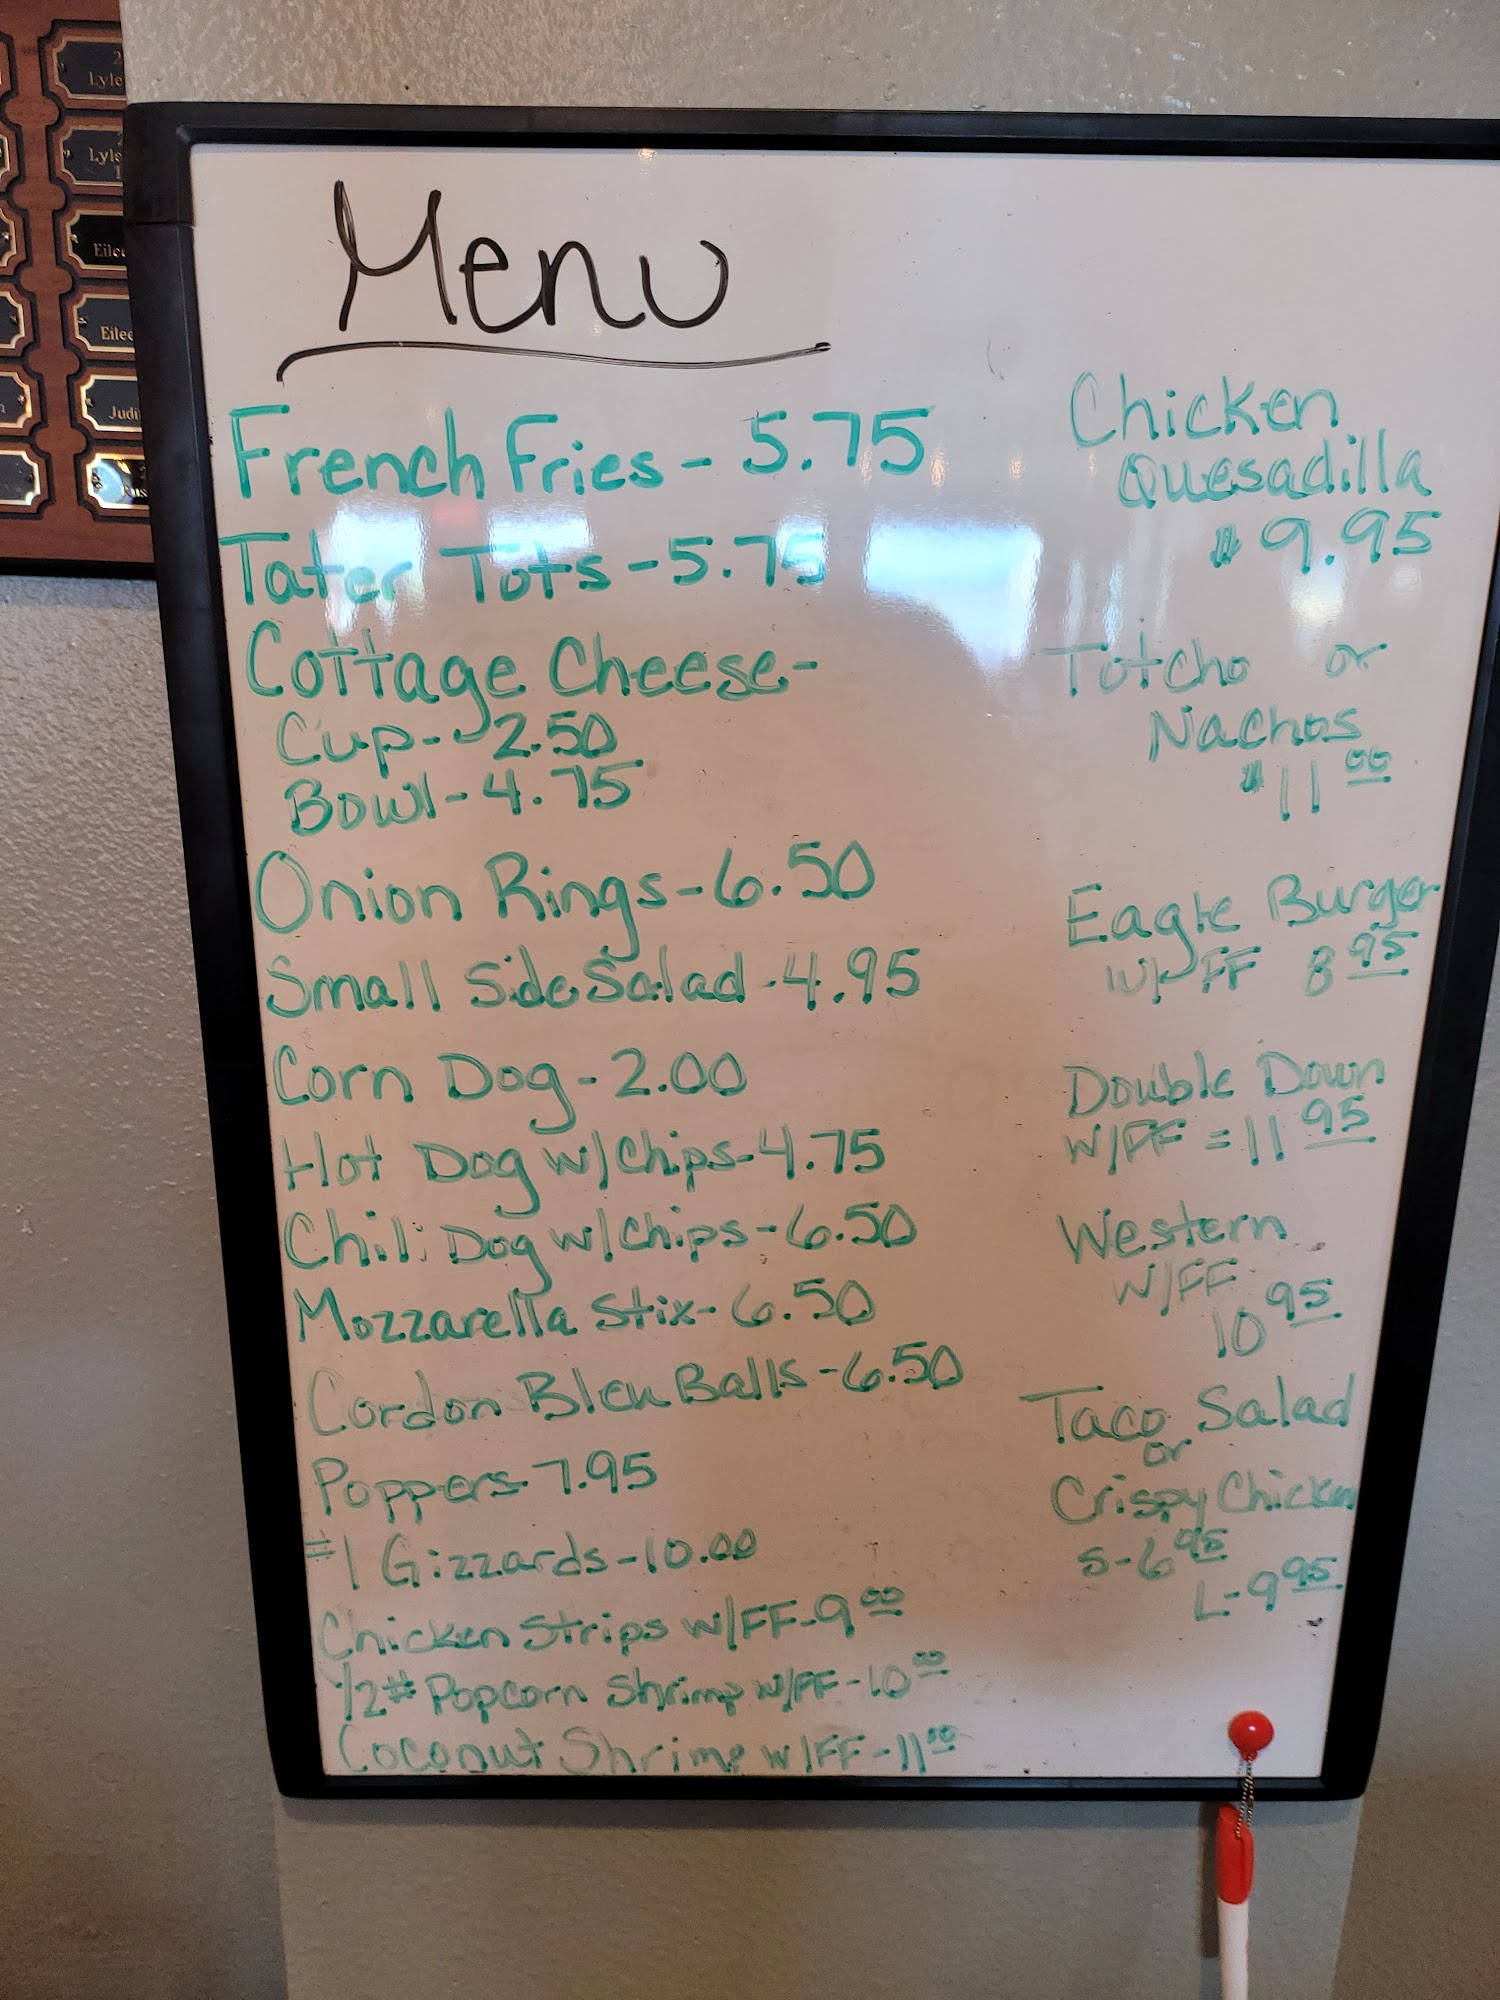 Menu
French Fries - 5.75
Tater Tots - 5.75
Cottage Cheese -
Cup - 2.50
Bowl - 4.75
Onion Rings - 6.50
Small Side Salad - 4.95
Corn Dog - 2.00
Hot Dog w/chips - 4.75
Chili Dog w/chips - 6.50
Mozzarella Stix - 6.50
Cordon Bleu Balls - 6.50
Poppers - 7.95
#1 Gizzards - 10.00
Chicken Strips w/FF - 9 00
1/2# Popcorn Shrimp w/FF - 10 00
Coconut Shrimp w/FF - 11 00
Chicken
Quesadilla
$ 9.95
Totcho or
Nachos
$ 11 00
Eagle Burger
w/ FF 8 95
Double Down
w/FF = 11 95
Western
W/FF
10 95
Taco Salad
or
Crispy Chicken
S - 6 95
L - 9 95
Lyle
Lyle
Judi